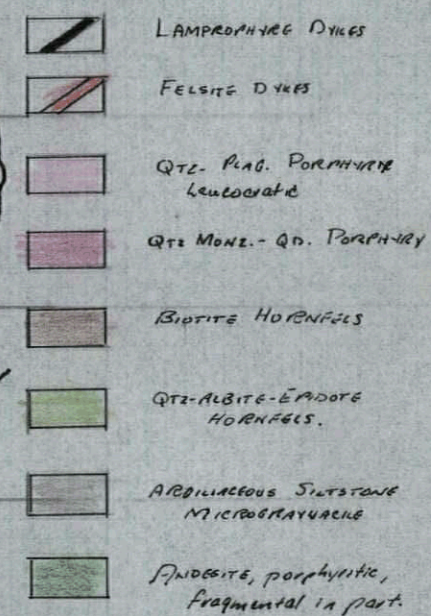 LAMPROPHYRE DYKES
FELSITE DYKES
QTZ- PLAG. PORPHYRY
Leucocratic
QTZ MONZ.- QD. PORPHYRY
BIOTITE HORNFELS
QTZ-ALBITE-EPIDOTE
HORNFELS.
ARGILLACEOUS SILTSTONE
MICROGRAYWACKE
ANDESITE, porphyritic,
fragmental in part.